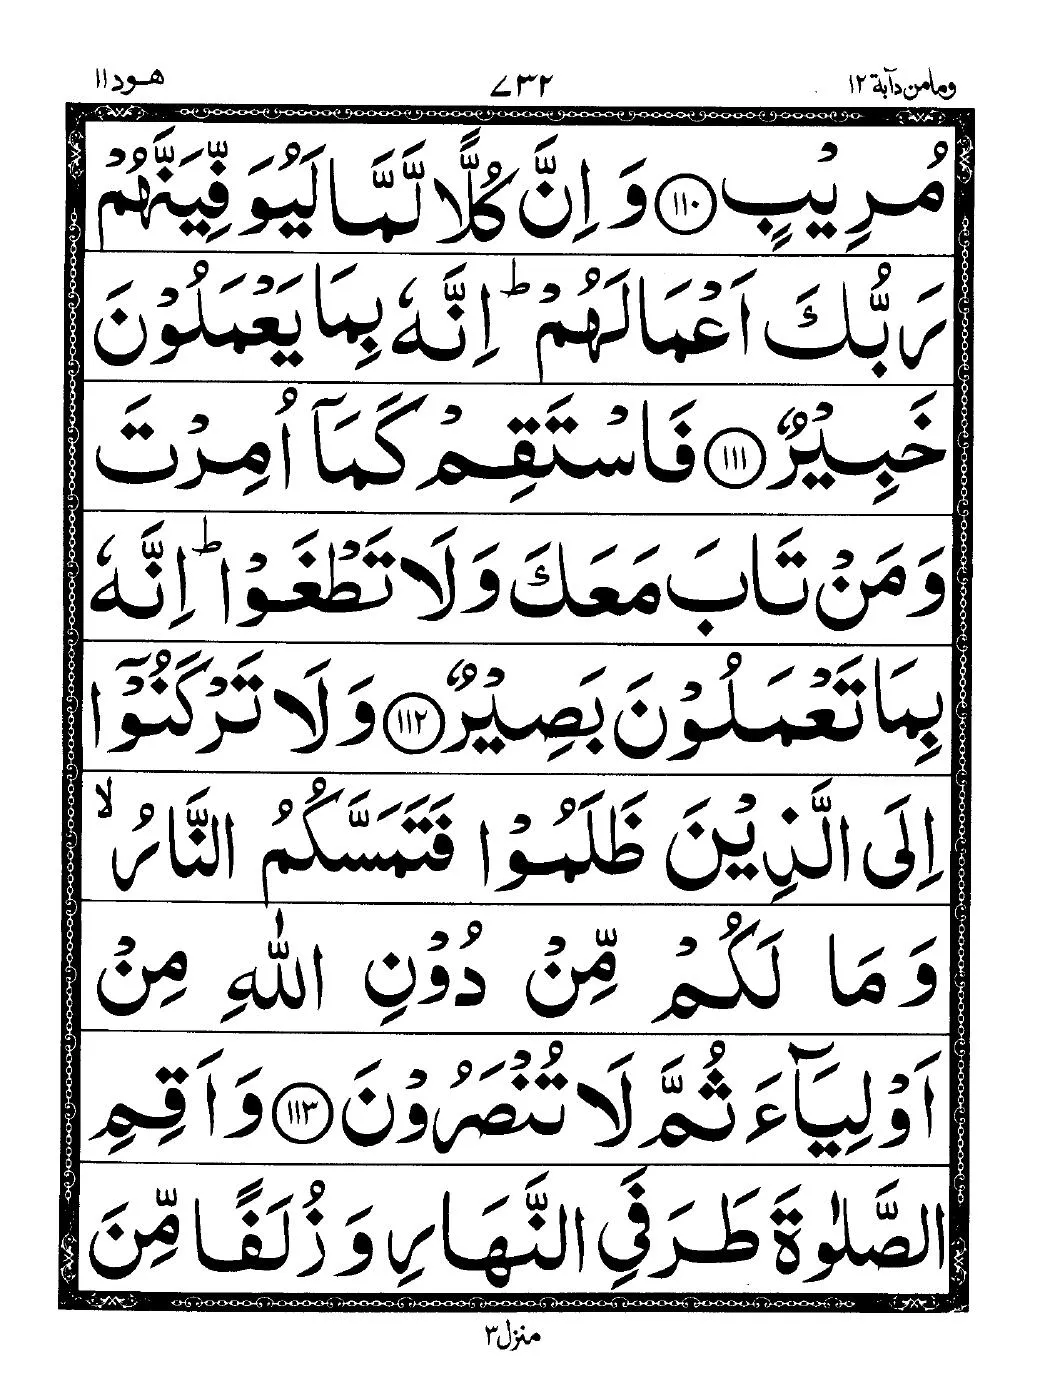 ومامن دآبة ١٢ ٧٣٢ هود ١١
مُرِيْبٍ ﴿١١٠﴾ وَ اِنَّ كُلًّا لَّمَّا لَيُوَفِّيَنَّهُمْ
رَبُّكَ اَعْمَالَهُمْ ؕ اِنَّهٗ بِمَا يَعْمَلُوْنَ
خَبِيْرٌ ﴿١١١﴾ فَاسْتَقِمْ كَمَاۤ اُمِرْتَ
وَمَنْ تَابَ مَعَكَ وَلَا تَطْغَوْا ؕ اِنَّهٗ
بِمَا تَعْمَلُوْنَ بَصِيْرٌ ﴿١١٢﴾ وَلَا تَرْكَنُوْۤا
اِلَى الَّذِيْنَ ظَلَمُوْا فَتَمَسَّكُمُ النَّارُ ۙ
وَمَا لَكُمْ مِّنْ دُوْنِ اللّٰهِ مِنْ
اَوْلِيَآءَ ثُمَّ لَا تُنْصَرُوْنَ ﴿١١٣﴾ وَاَقِمِ
الصَّلٰوةَ طَرَفَيِ النَّهَارِ وَزُلَفًا مِّنَ
منزل ٣